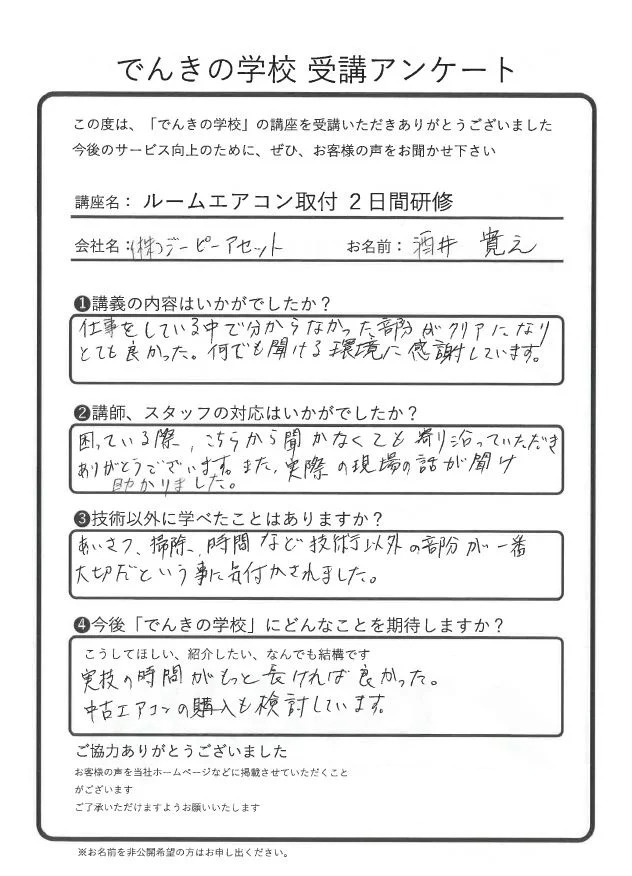 でんきの学校 受講アンケート
この度は、「でんきの学校」の講座を受講いただきありがとうございました
今後のサービス向上のために、ぜひ、お客様の声をお聞かせ下さい
講座名： ルームエアコン取付 2日間研修
会社名：(株)ジーピーアセット お名前： 酒井 寛え
❶講義の内容はいかがでしたか？
仕事をしている中で分からなかった部分がクリアになり
とても良かった。何でも聞ける環境に感謝しています。
❷講師、スタッフの対応はいかがでしたか？
困っている際、こちらから聞かなくても寄り沿っていただき
ありがとうございます。また、実際の現場の話が聞け
助かりました。
❸技術以外に学べたことはありますか？
あいさつ、掃除、時間など技術以外の部分が一番
大切だという事に気付かされました。
❹今後「でんきの学校」にどんなことを期待しますか？
こうしてほしい、紹介したい、なんでも結構です
実技の時間がもっと長ければ良かった。
中古エアコンの購入も検討しています。
ご協力ありがとうございました
お客様の声を当社ホームページなどに掲載させていただくこと
がございます
ご了承いただけますようお願いいたします
※お名前を非公開希望の方はお申し出ください。